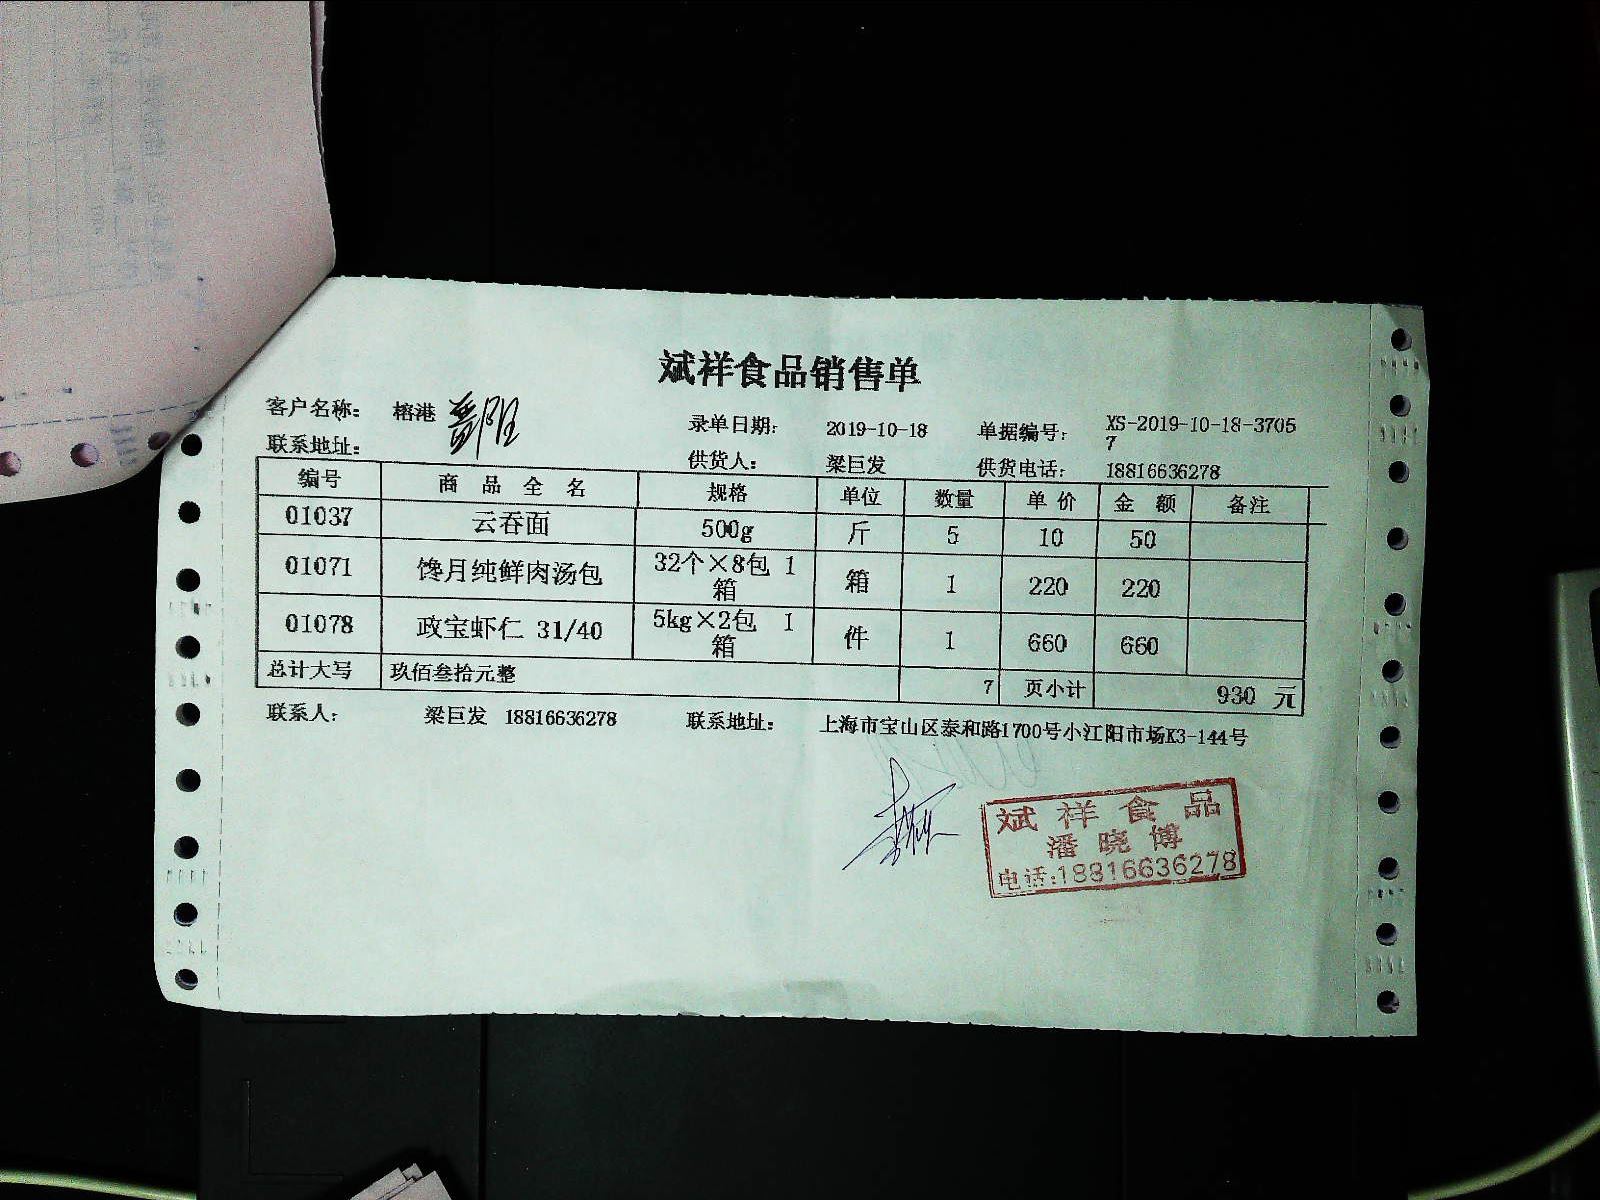 斌祥食品销售单
客户名称： 榕港 录单日期： 2019-10-18 单据编号： XS-2019-10-18-37057
联系地址： 供货人： 梁巨发 供货电话： 18816636278
编号 商品全名 规格 单位 数量 单价 金额 备注
01037 云吞面 500g 斤 5 10 50
01071 馋月纯鲜肉汤包 32个×8包 1箱 箱 1 220 220
01078 政宝虾仁 31/40 5kg×2包 1箱 件 1 660 660
总计大写 玖佰叁拾元整 7 页小计 930 元
联系人： 梁巨发 18816636278 联系地址： 上海市宝山区泰和路1700号小江阳市场K3-144号
斌祥食品
潘晓博
电话:18816636278